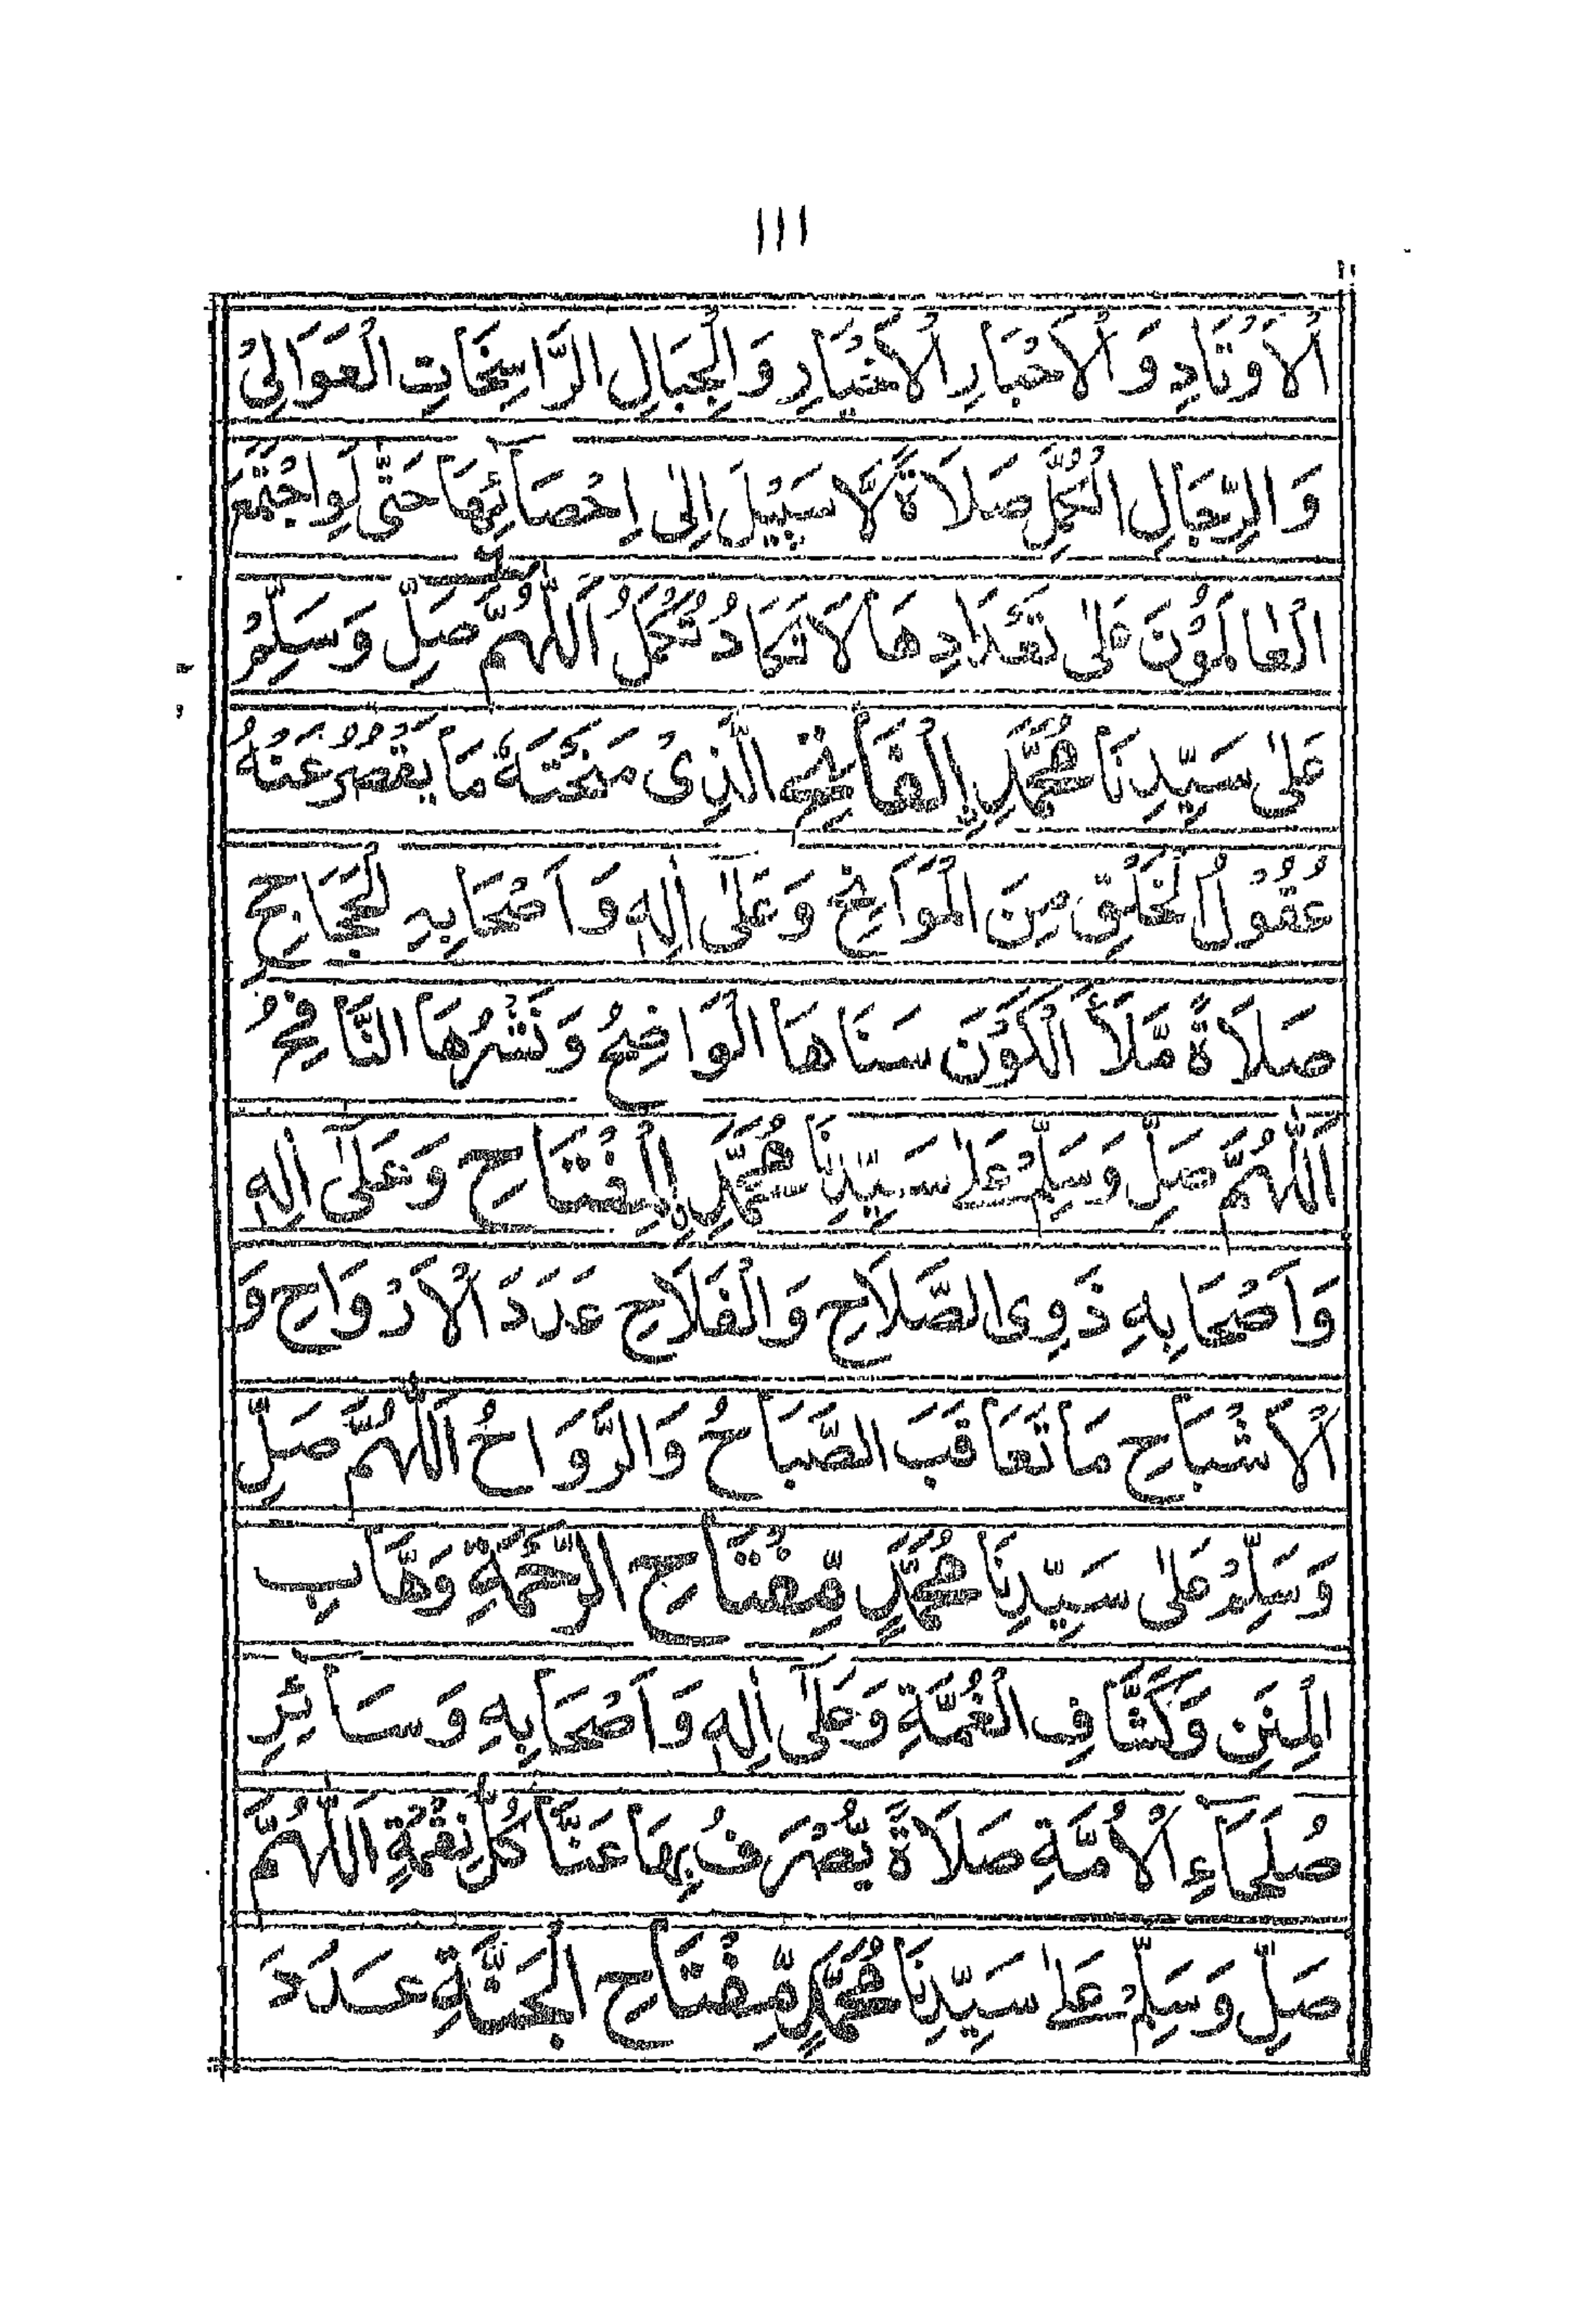 ١١١
الْاَوْتَادِ وَ الْاَحْبَارِ الْاَخْيَارِ وَالْجِبَالِ الرَّاسِخَاتِ الْعَوَالِیْ
وَ الرِّجَالِ الْكُمَّلِ صَلَاةً لَّا سَبِيْلَ اِلٰی اِحْصَآئِهَا حَتّٰی لَوِاجْتَمَعَ
الْعٰالَمُوْنَ عَلٰی تَعْدَادِ هَا لَا تَكَادُ تُكْمَلُ اَللّٰهُمَّ صَلِّ وَسَلِّمْ
عَلٰی سَيِّدِنَا مُحَمَّدِ نِ الْفَاتِحِ الَّذِیْ مَنَحْتَهٗ مَا يَقْصُرُ عَنْهُ
عُقُوْلُ الْخَلْقِ مِنَ الْمَوَانِحِ وَعَلٰی اٰلِهٖ وَ اَصْحَابِهِ الْجَحَاجِحِ
صَلَاةً مَّلَأَ الْكَوْنَ سَنَاهَا الْوَاضِحُ وَنَشْرُهَا النَّافِحُ
اَللّٰهُمَّ صَلِّ وَسَلِّمْ عَلٰی سَيِّدِنَا مُحَمَّدِ نِ الْمِفْتَاحِ وَعَلٰٓی اٰلِهٖ
وَ اَصْحَابِهٖ ذَوِی الصَّلَاحِ وَالْفَلَاحِ عَدَدَ الْاَرْوَاحِ وَ
الْاَشْبَاحِ مَا تَعَاقَبَ الصَّبَاحُ وَالرَّوَاحُ اَللّٰهُمَّ صَلِّ
وَسَلِّمْ عَلٰی سَيِّدِنَا مُحَمَّدٍ مِّفْتَاحِ الرَّحْمَةِ وَهَّابِ
الْمِنَنِ وَكَشَّافِ الْغُمَّةِ وَعَلٰٓی اٰلِهٖ وَ اَصْحَابِهٖ وَ سَائِرِ
صُلَحَآءِ الْاُمَّةِ صَلَاةً يُّصْرَفُ بِهَا عَنَّا كُلُّ نِقْمَةٍ اَللّٰهُمَّ
صَلِّ وَسَلِّمْ عَلٰی سَيِّدِنَا مُحَمَّدٍ مِّفْتَاحِ الْجَنَّةِ عَدَدَ